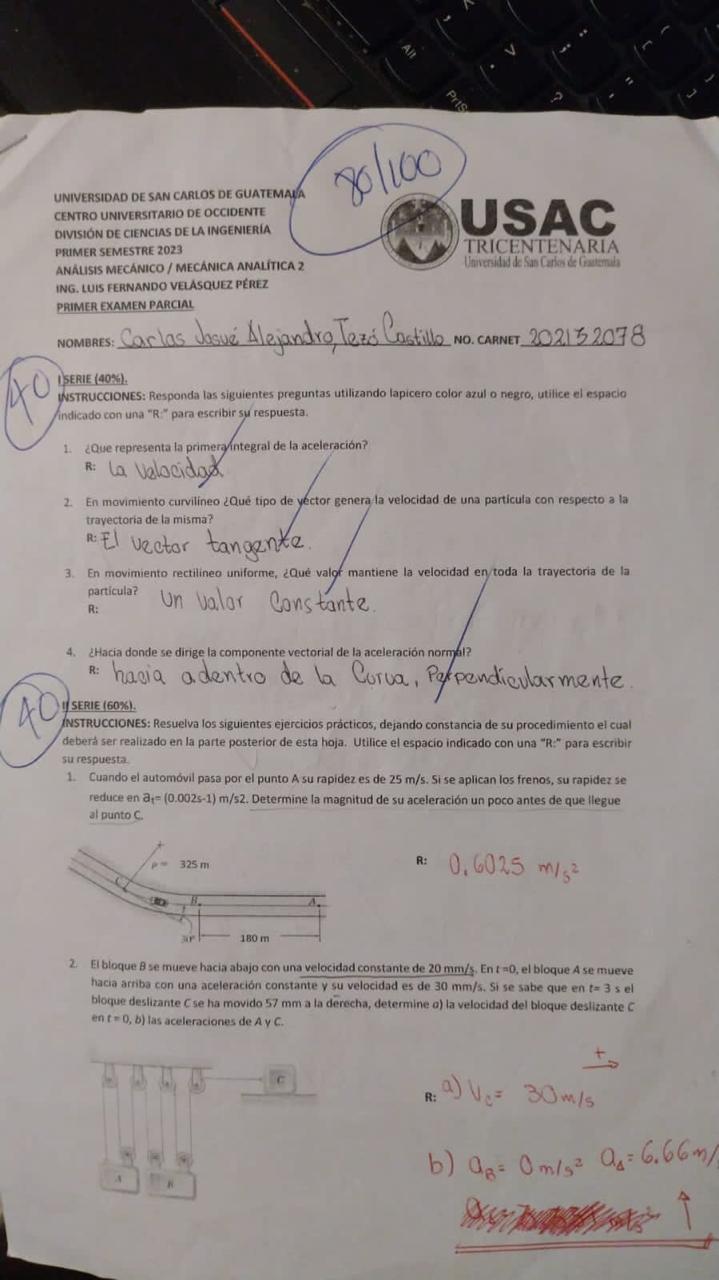 Alt
PrtSc
80/100
UNIVERSIDAD DE SAN CARLOS DE GUATEMALA
CENTRO UNIVERSITARIO DE OCCIDENTE
DIVISIÓN DE CIENCIAS DE LA INGENIERÍA
PRIMER SEMESTRE 2023
ANÁLISIS MECÁNICO / MECÁNICA ANALÍTICA 2
ING. LUIS FERNANDO VELÁSQUEZ PÉREZ
PRIMER EXAMEN PARCIAL
USAC
TRICENTENARIA
Universidad de San Carlos de Guatemala
NOMBRES: Carlos Josué Alejandro, Tezó Castillo NO. CARNET 202132078
40
I SERIE (40%).
INSTRUCCIONES: Responda las siguientes preguntas utilizando lapicero color azul o negro, utilice el espacio
indicado con una "R:" para escribir su respuesta.
1. ¿Que representa la primera integral de la aceleración?
R: La Velocidad
2. En movimiento curvilíneo ¿Qué tipo de vector genera la velocidad de una partícula con respecto a la
trayectoria de la misma?
R: El vector tangente.
3. En movimiento rectilíneo uniforme, ¿Qué valor mantiene la velocidad en toda la trayectoria de la
partícula?
R: Un valor Constante.
4. ¿Hacia donde se dirige la componente vectorial de la aceleración normal?
R: hacia adentro de la Curva, Perpendicularmente.
40
II SERIE (60%).
INSTRUCCIONES: Resuelva los siguientes ejercicios prácticos, dejando constancia de su procedimiento el cual
deberá ser realizado en la parte posterior de esta hoja. Utilice el espacio indicado con una "R:" para escribir
su respuesta.
1. Cuando el automóvil pasa por el punto A su rapidez es de 25 m/s. Si se aplican los frenos, su rapidez se
reduce en at= (0.002s-1) m/s2. Determine la magnitud de su aceleración un poco antes de que llegue
al punto C.
ρ = 325 m
R: 0,6025 m/s²
C
B
A
30°
180 m
2. El bloque B se mueve hacia abajo con una velocidad constante de 20 mm/s. En t =0, el bloque A se mueve
hacia arriba con una aceleración constante y su velocidad es de 30 mm/s. Si se sabe que en t= 3 s el
bloque deslizante C se ha movido 57 mm a la derecha, determine a) la velocidad del bloque deslizante C
en t = 0, b) las aceleraciones de A y C.
C
A
B
+
R: a) Vc= 30 m/s
b) aB= 0 m/s² aA= 6.66 m/